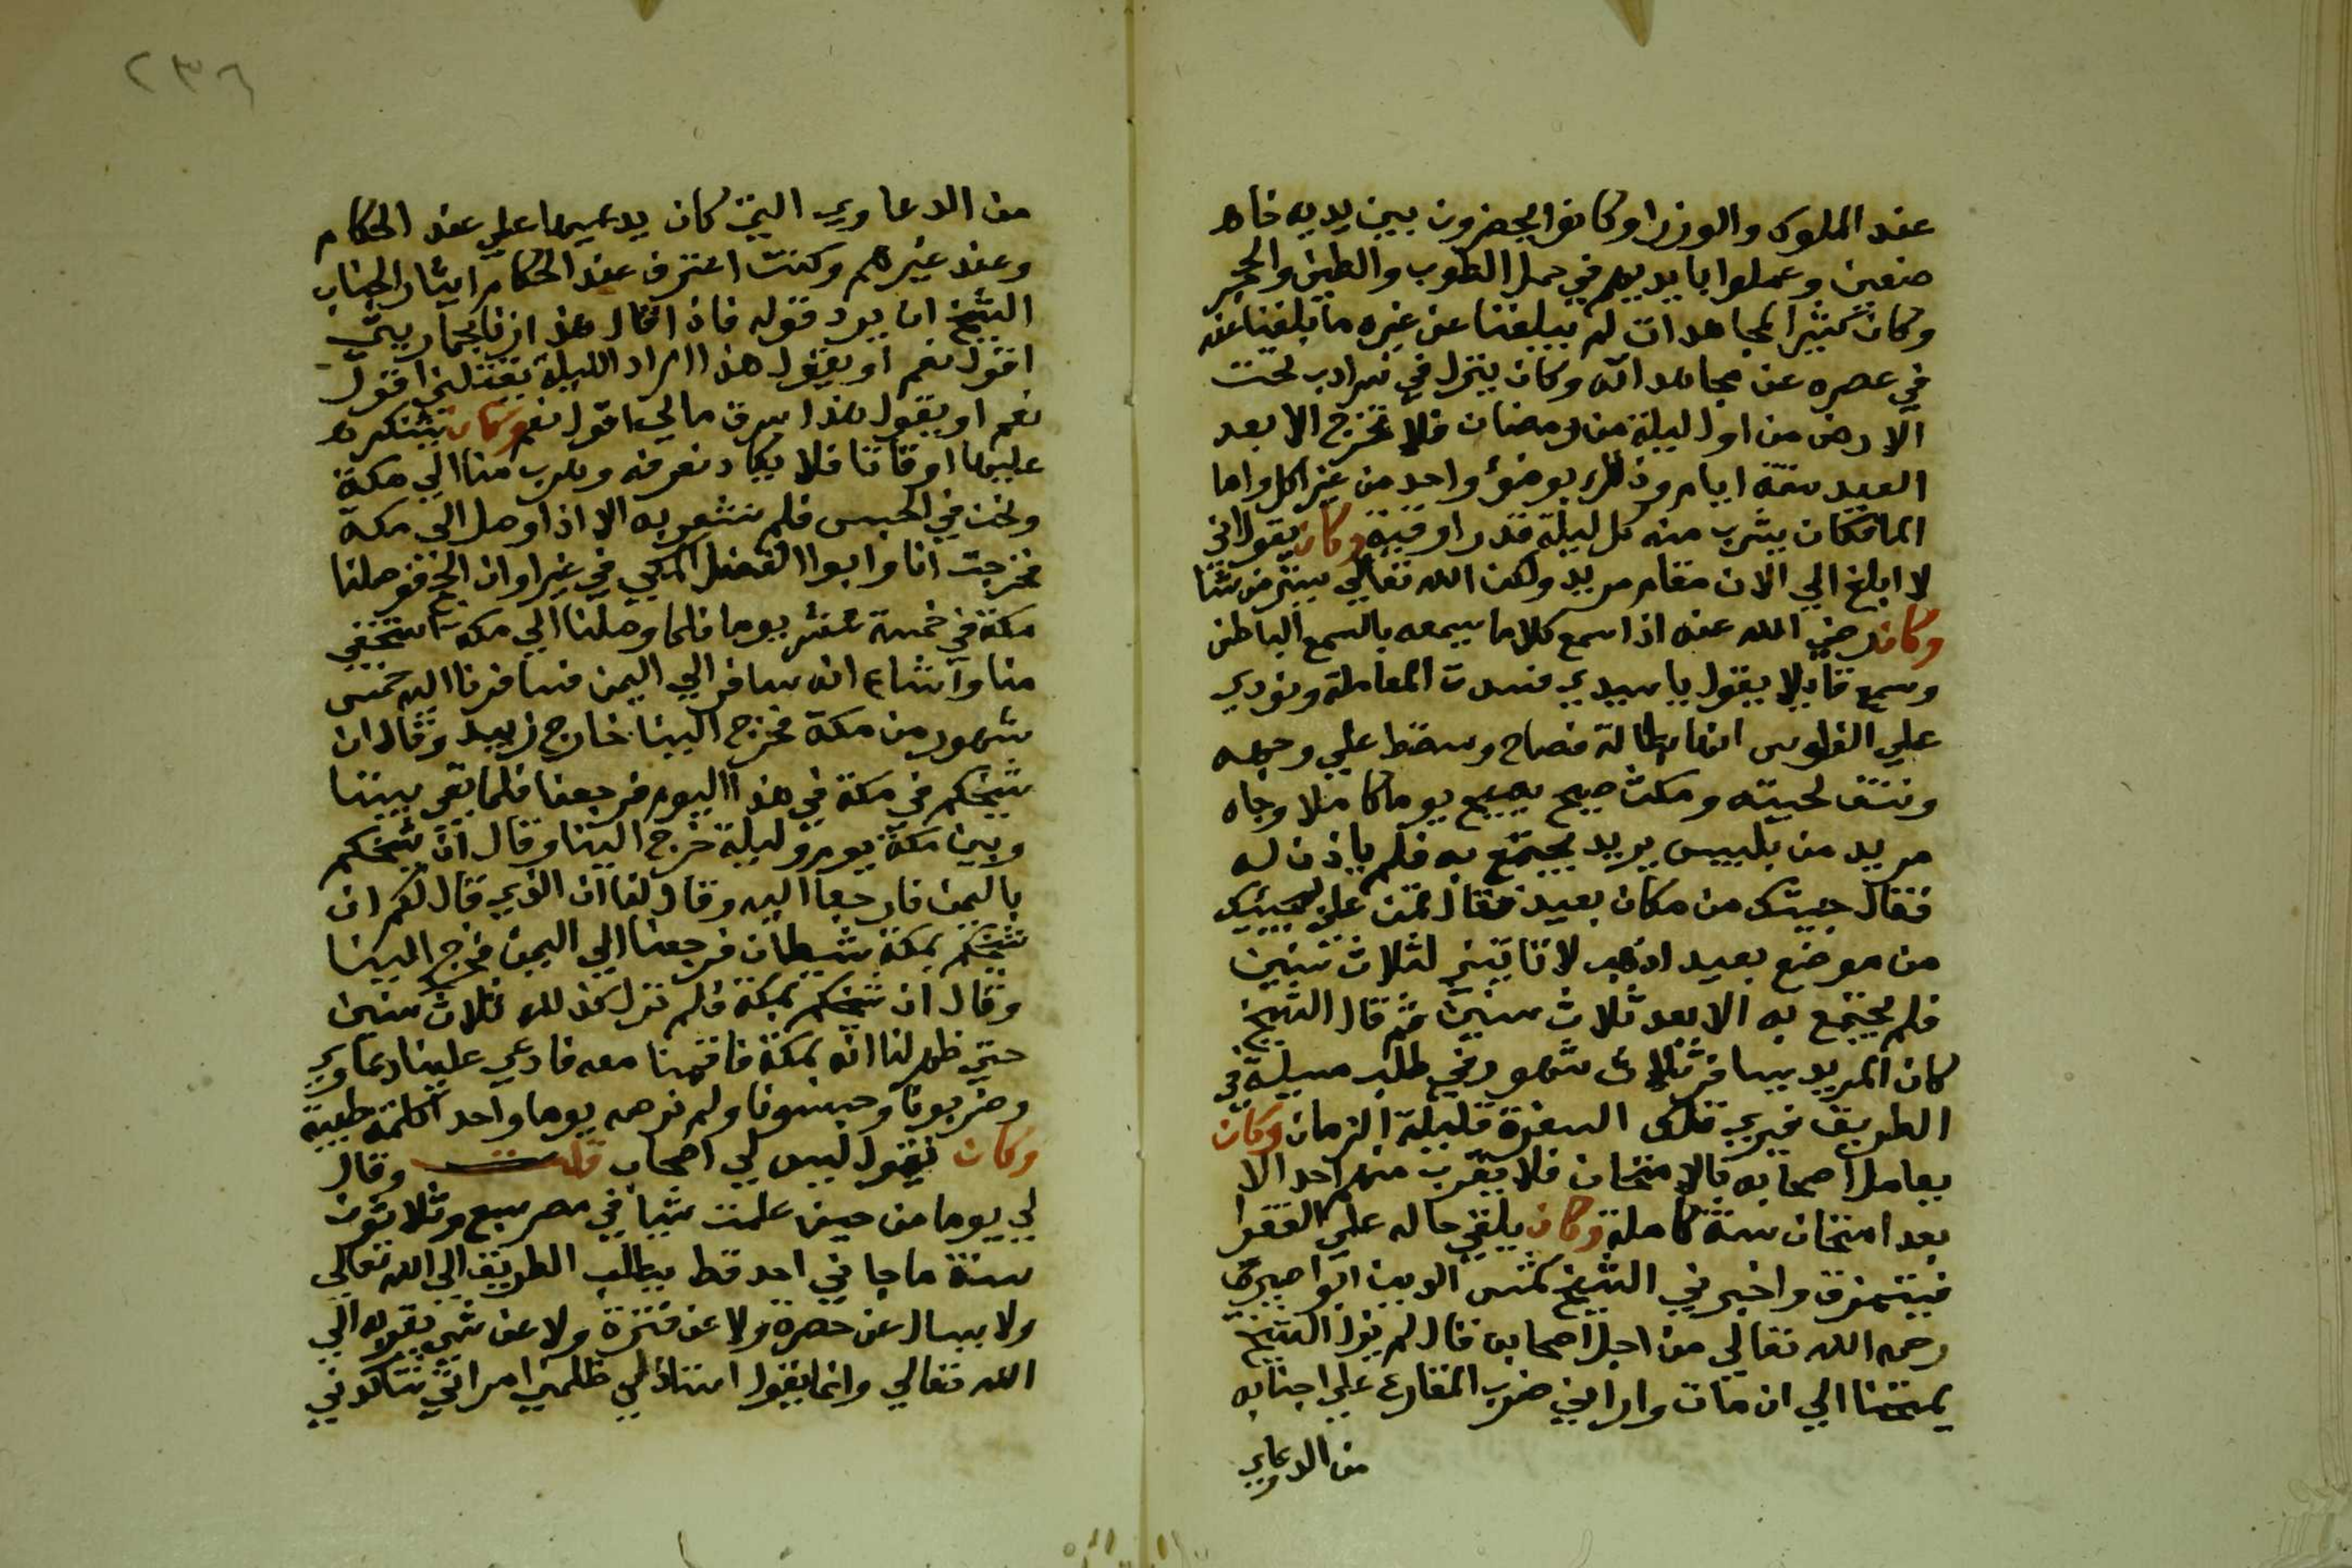 عند الملوك والوزرا وكانوا يحضرون بين يديه خا
ضعين وعملوا بايديهم في حمل الطوب والطين والحجر
وكان كثير المجاهدات لم يبلغنا عن غيره ما بلغنا عنه
في عصره عن مجاهداته وكان ينزل في سرادب تحت
الارض من اول ليلة من رمضان فلا يخرج الا بعد
العيد ستة ايام وذلك بوضوء واحد من غير اكل واما
الما فكان يشرب منه كل ليلة قدر اوقية وكان يقول اني
لا ابلغ الي الان مقام مريد ولكن الله تعالي يستر من يشا
وكان رضي الله عنه اذا سمع كلاما يسمعه بالسمع الباطن
وسمع قايلا يقول يا سيدي فسدت المعاملة ونودي
علي الفلوس انها بطالة فصاح وسقط علي وجهه
ونتف لحيته ومكث يصيح يوما كاملا وجاه
مريد من بلبيس يريد يجتمع به فلم ياذن له
فقال جيتك من مكان بعيد فقال تمن علي بمجيئك
من موضع بعيد اذهب لا تاتيني لثلاث سنين
فلم يجتمع به الا بعد ثلاث سنين ثم قال الشيخ
كان المريد يسافر ثلاث شهور في طلب مسيلة في
الطريق فيري تلك السفرة قليلة الزمان وكان
يعامل اصحابه بالامتحان فلا يقرب منهم احد الا
بعد امتحان سنة كاملة وكان يلقي حاله علي الفقرا
فيتمزق واخبرني الشيخ شمس الدين
رحمه الله تعالي من اجل اصحابه قال لم يزل الشيخ
يمتحننا الي ان مات واراني ضرب المقارع علي اجنابه
من الدعاوي
٢٣٦
من الدعاوي التي كان يدعيها علي عند الحكام
وعند غيرهم وكنت اعترف عند الحكام ايثار الجناب
الشيخ ان يرد قوله فاذا قال هذا زنا بجاريتي
اقول نعم او يقول هذا اراد الليلة يقتلني اقول
نعم او يقول هذا سرق مالي اقول نعم وكان يتنكر
علينا اوقاتا فلا يكاد نعرفه وهرب منا الي مكة
ونحن في الحبس فلم نشعر به الا اذا وصل الي مكة
فخرجت انا وابوا الفضل المكي في غير اوان الحج فوصلنا
مكة في خمسة عشر يوما فلما وصلنا الي مكة استخفي
منا واشاع انه سافر الي اليمن فسافرنا اليه خمس
شهور من مكة فخرج الينا خارج زبيد وقال ان
شيخكم في مكة في هذا اليوم فرجعنا فلما بقي بيننا
وبين مكة يوم وليلة خرج الينا وقال ان شيخكم
باليمن فارجعا اليه وقال لنا ان الذي قال لكم ان
شيخكم بمكة شيطان فرجعنا الي اليمن فخرج الينا
وقال ان شيخكم بمكة فلم نزل كذلك ثلاث سنين
حتي ظهر لنا انه بمكة فاقمنا معه فادعي علينا دعاوي
وضربونا وحبسونا ولم نر منه يوما واحدا كلمة طيبة
وكان يقول ليس لي اصحاب قلت وقال
لي يوما من حين علمت شيا في مصر سبع وثلاثون
سنة ما جاني احد قط يطلب الطريق الي الله تعالي
ولا يسال عن حصرة ولا عن فترة ولا عن شي يقربه الي
الله تعالي وانما يقول استاذلي ظلمني امراتي تناكدني